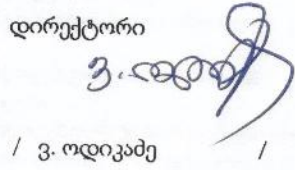 დირექტორი
/ ვ. ოდიკაძე /